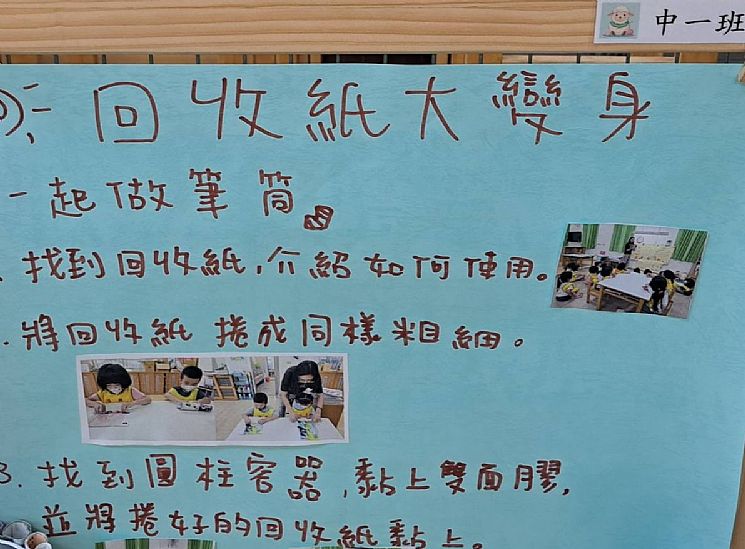 中一班
回收紙大變身
一起做筆筒
找到回收紙,介紹如何使用。
將回收紙捲成同樣粗細。
3.找到圓柱容器,黏上雙面膠,
並將捲好的回收紙黏上。